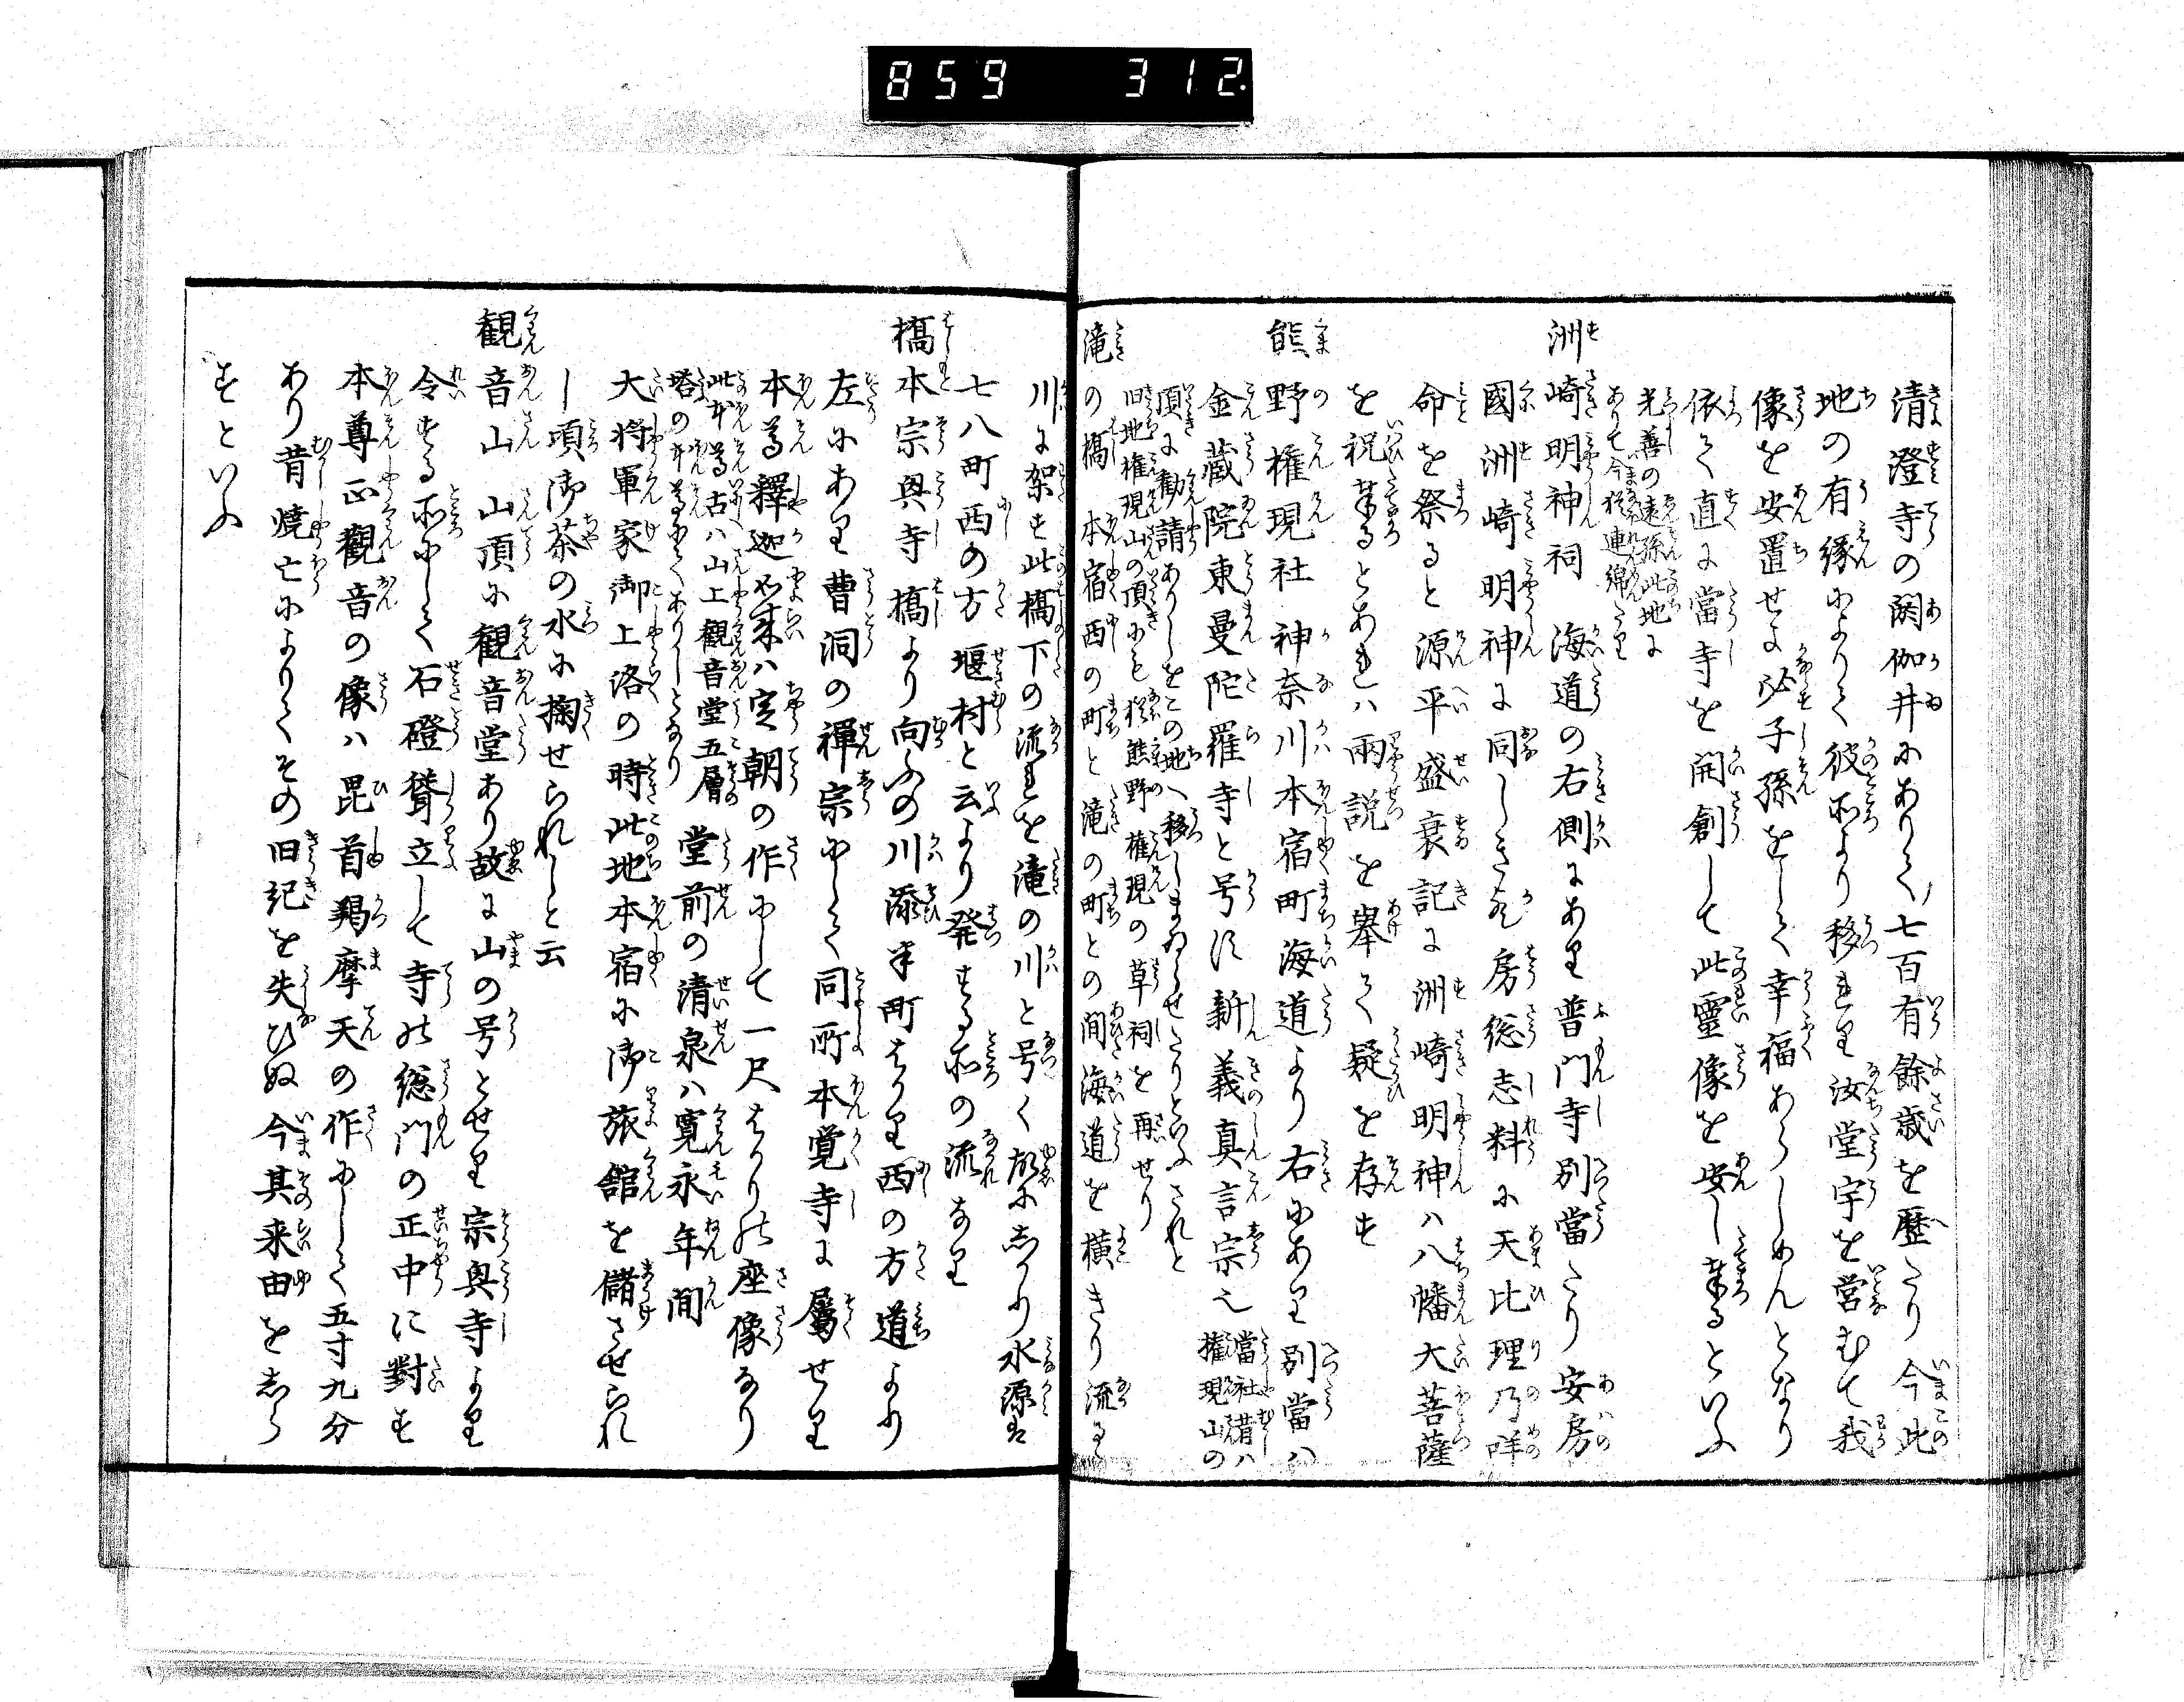 859 312.
清澄寺の閼伽井にありて七百有餘歳を歴たり今此
地の有縁によりて彼所より移れり汝堂宇を営むて我
像を安置せよ必子孫をして幸福あらしめんとなり
依て直に當寺を開創して此靈像を安し奉るといふ
光善の遠孫此地に
ありて今猶連綿たり
洲崎明神祠 海道の右側にあり普門寺別當たり安房
國洲崎明神に同しき歟房総志料に天比理乃咩
命を祭ると源平盛衰記に洲崎明神ハ八幡大菩薩
を祝奉るとあれハ兩説を挙て疑を存す
熊野権現社 神奈川本宿町海道より右にあり別當ハ
金蔵院東曼陀羅寺と号す新義真言宗也 當社昔ハ権現山の
頂に勧請ありしをこの地へ移しまゐらせたりといふされと
旧地権現山の頂にも猶熊野権現の草祠を再せり
滝の橋 本宿西の町と滝の町との間海道を横きり流るゝ
川に架す此橋下の流れを滝の川と号く故にしかり水源は
七八町西の方堰村と云より発する所の流なり
橋本宗興寺 橋より向ふの川添半町はかり西の方道より
左にあり曹洞の禅宗にして同所本覚寺に屬せり
本尊釋迦如来ハ定朝の作にして一尺はかりの座像なり
此本尊古ハ山上観音堂五層
塔の本尊にてありしとなり
堂前の清泉ハ寛永年間
大将軍家御上洛の時此地本宿に御旅舘を儲させられ
し頃御茶の水に掬せられしと云
観音山 山頂に観音堂あり故に山の号とせり宗興寺より
令する所にして石磴聳立して寺の総門の正中に對す
本尊正觀音の像ハ毘首羯摩天の作にして五寸九分
あり昔焼亡によりてその旧記を失ひぬ今其来由をしら
すといふ